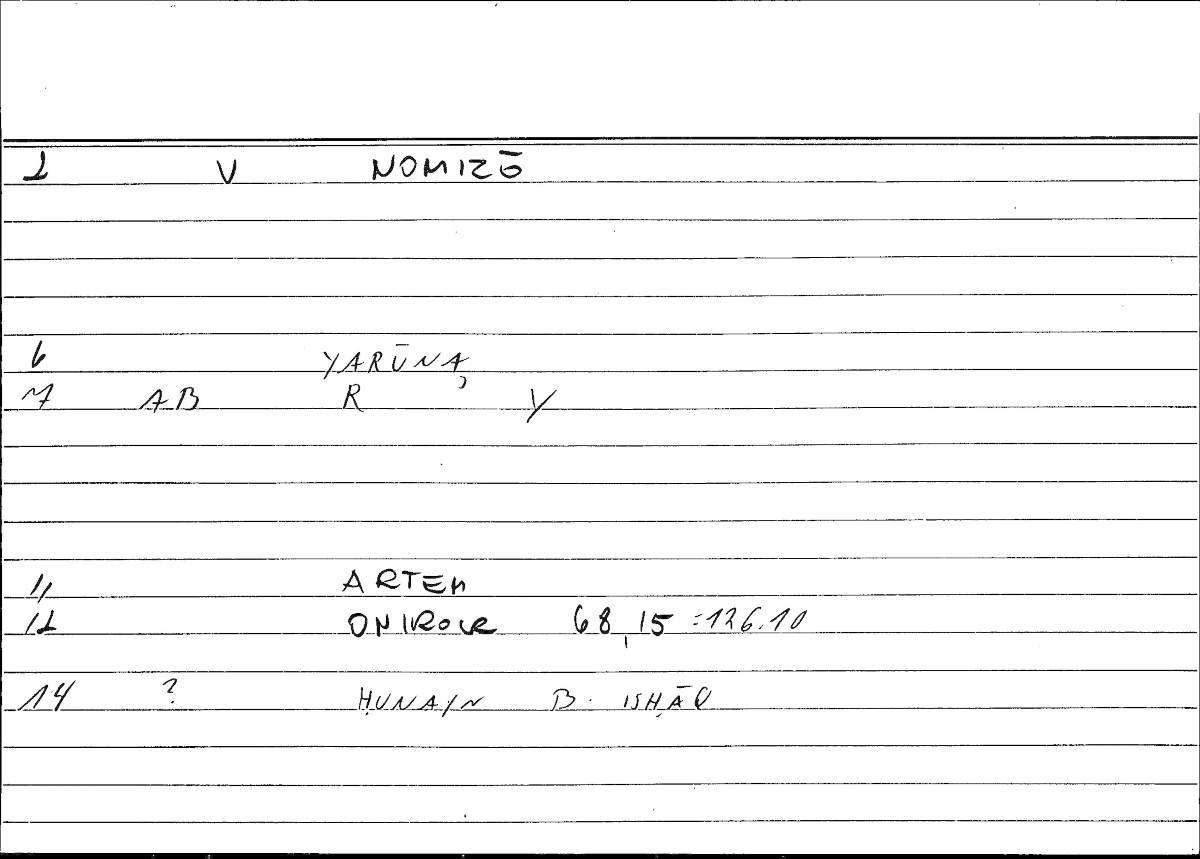 2 V NOMIZŌ
6 YARŪNA,
7 AB R Y
11 ARTEM
12 ONIROCR 68,15 = 126.10
14 ? ḤUNAYN B. ISḤĀQ